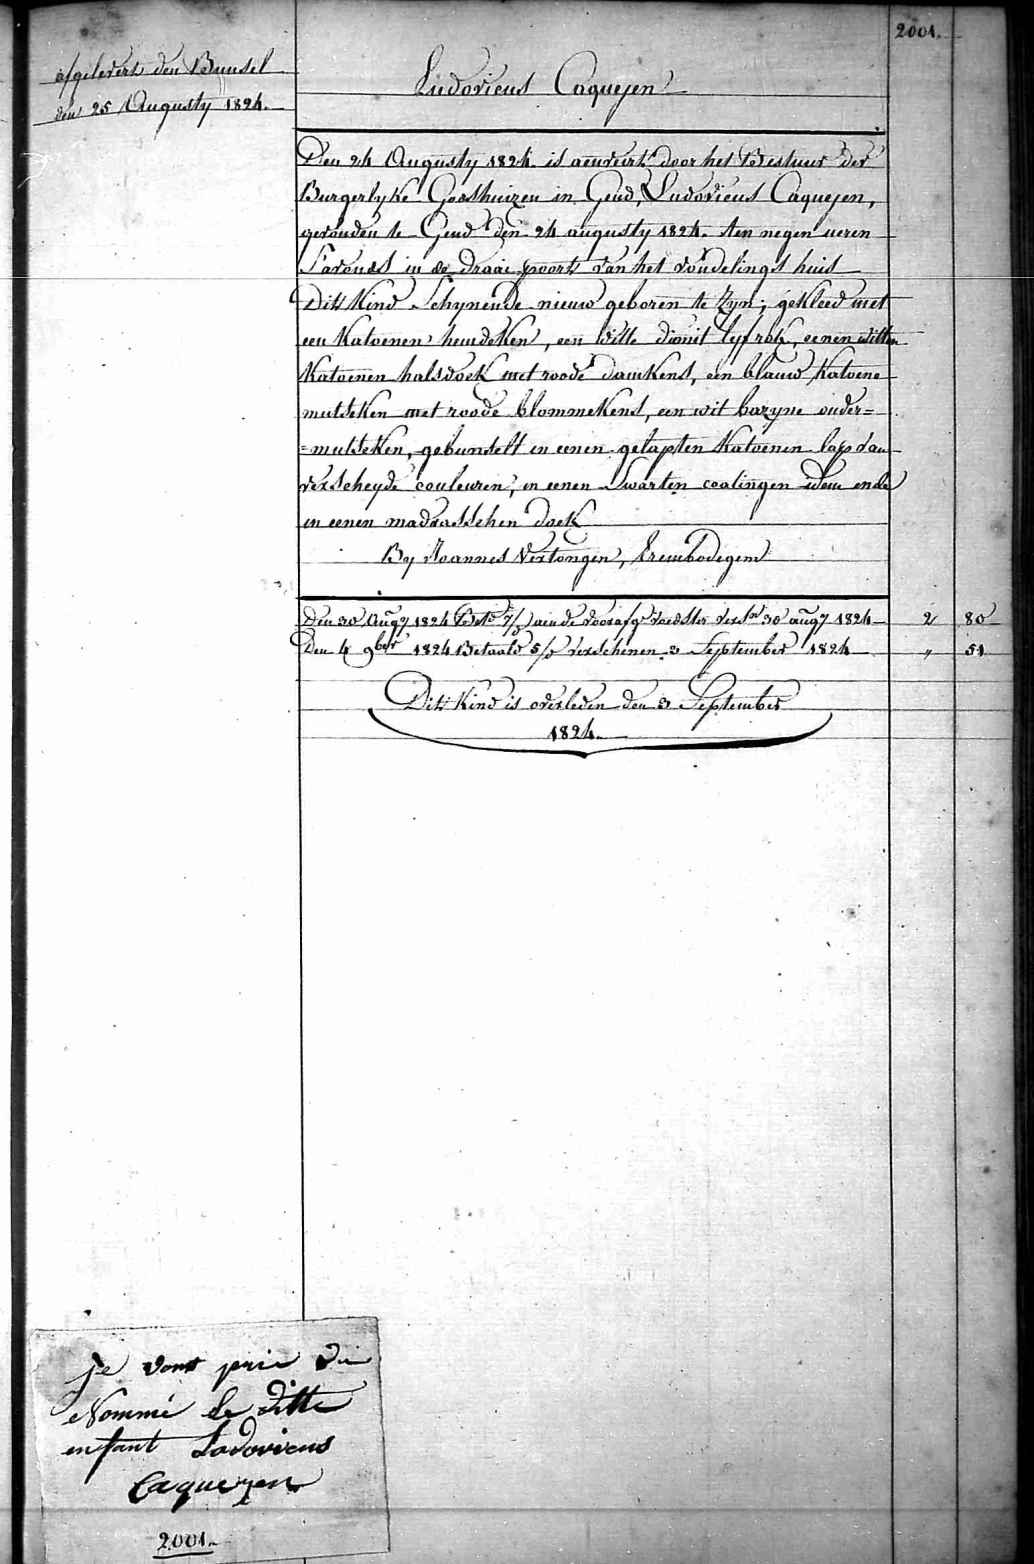 2001.
afgelevert den Bunsel
den 25 Augusty 1824.
Ludovicus Caqueyen
Den 24 Augusty 1824. is aenveirt door het Bestuur der
Burgerlyke Godshuizen in Gend, Ludovicus Caqueyen,
gevonden te Gend den 24 augusty 1824. ten negen ueren
s'avonds in de draai poort van het vondelings huis
Dits Kind schynende nieuw geboren te zyn; gekleed met
een Katoenen hemdeken, een witte dimit lyfrok, eenen witten
Katoenen halsdoek met roode damkens, een blauw Katoene
mutseken met roode blommekens, een wit bazyne onder=
=mutseken, gebundelt in eenen gelapten Katoenen lap van
verscheyde couleuren, in eenen swarten coatingen idem ende
in eenen madrasschen doek
By Joannes Vertongen, Erembodegem
Den 30 Augy 1824 Bet. 7/ aen de voorafg. voedster vers. 30 augy 1824 2 80
Den 4 9ber 1824 Betaald 5/ verschenen 3 September 1824 „ 51
Dits Kind is overleden den 3 September
1824.
je vous prie di
Nommé le ditte
enfant Ludovicus
Caqueyen
2001.